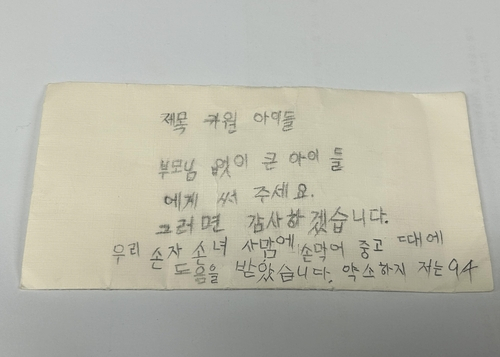 제목 키월 아이들
부모님 없이 큰 아이 들
에게 써 주세요.
그러면 감사하겠습니다.
우리 손자 손녀 사맘에 손막어 중고 때에
드흠을 받았습니다. 약소하지 저는 94